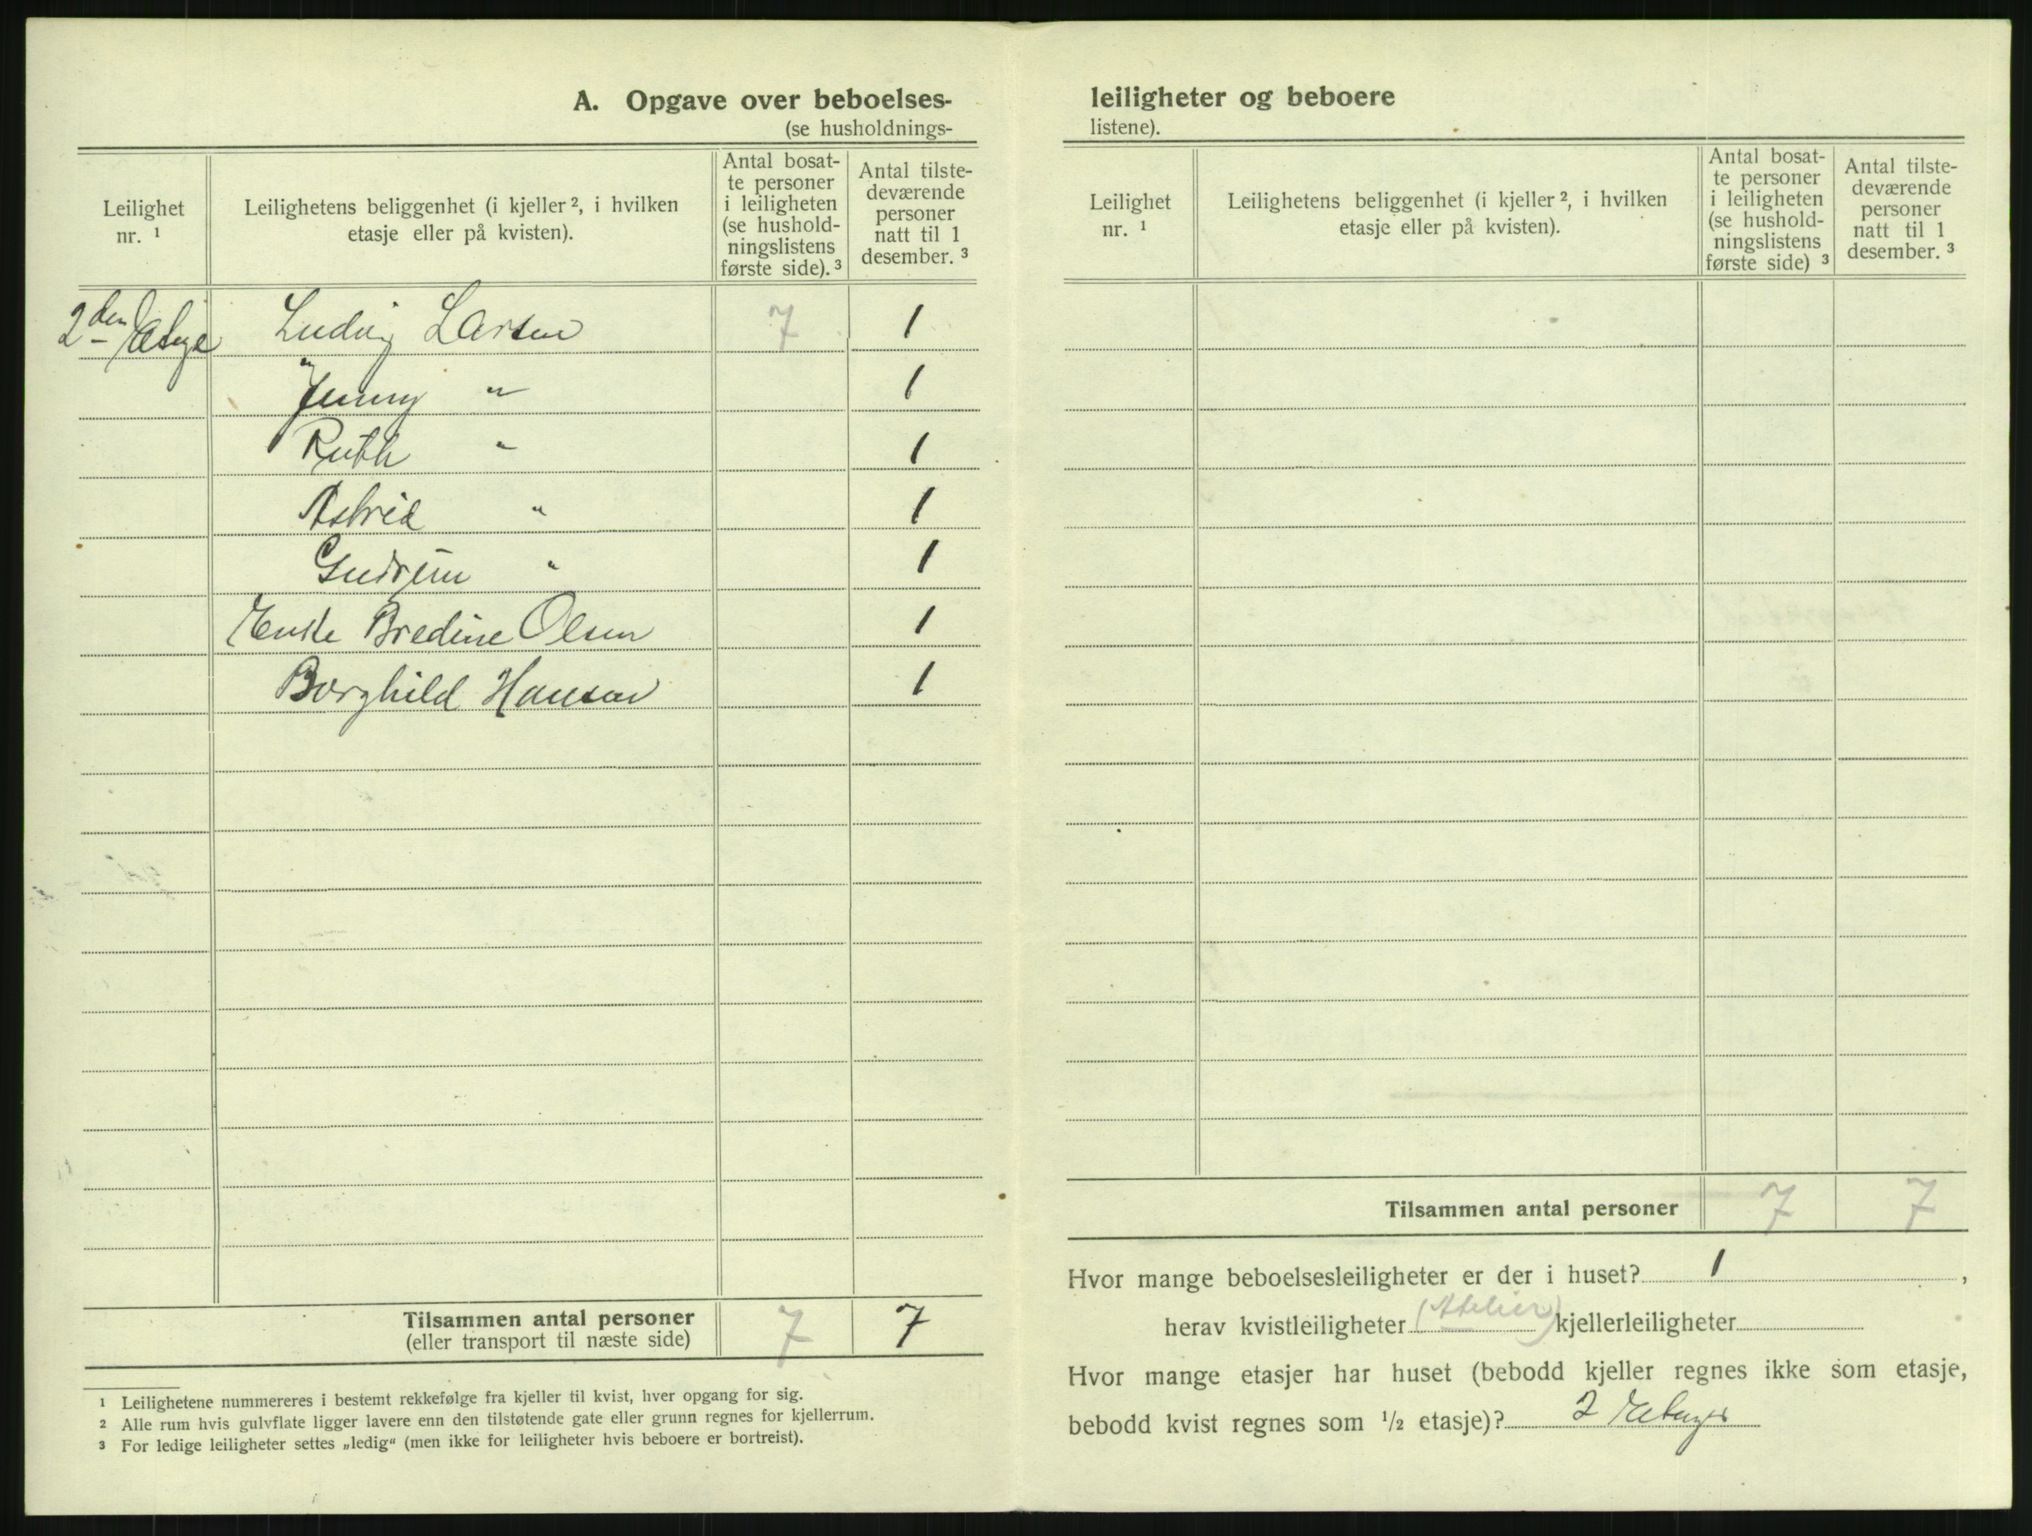 A. Opgave over beboelses-
(se husholdnings-
Leilighet
nr. ¹
Leilighetens beliggenhet (i kjeller ², i hvilken
etasje eller på kvisten).
Antal bosat-
te personer
i leiligheten
(se hushold-
ningslistens
første side). ³
Antal tilste-
deværende
personer
natt til 1
desember. ³
2den Etage Ludvig Larsen 7 1
Jenny " 1
Ruth " 1
Astrid " 1
Gudrun " 1
Enke Bredine Olsen 1
Borghild Hansen 1
Tilsammen antal personer 7 7
(eller transport til næste side)
¹ Leilighetene nummereres i bestemt rekkefølge fra kjeller til kvist, hver opgang for sig.
² Alle rum hvis gulvflate ligger lavere enn den tilstøtende gate eller grunn regnes for kjellerrum.
³ For ledige leiligheter settes „ledig“ (men ikke for leiligheter hvis beboere er bortreist).
leiligheter og beboere
listene).
Leilighet
nr. ¹
Leilighetens beliggenhet (i kjeller ², i hvilken
etasje eller på kvisten).
Antal bosat-
te personer
i leiligheten
(se hushold-
ningslistens
første side) ³
Antal tilste-
deværende
personer
natt til 1
desember. ³
Tilsammen antal personer 7 7
Hvor mange beboelsesleiligheter er der i huset? 1 ,
herav kvistleiligheter (Atelier) kjellerleiligheter
Hvor mange etasjer har huset (bebodd kjeller regnes ikke som etasje,
bebodd kvist regnes som ½ etasje)? 2 Etager